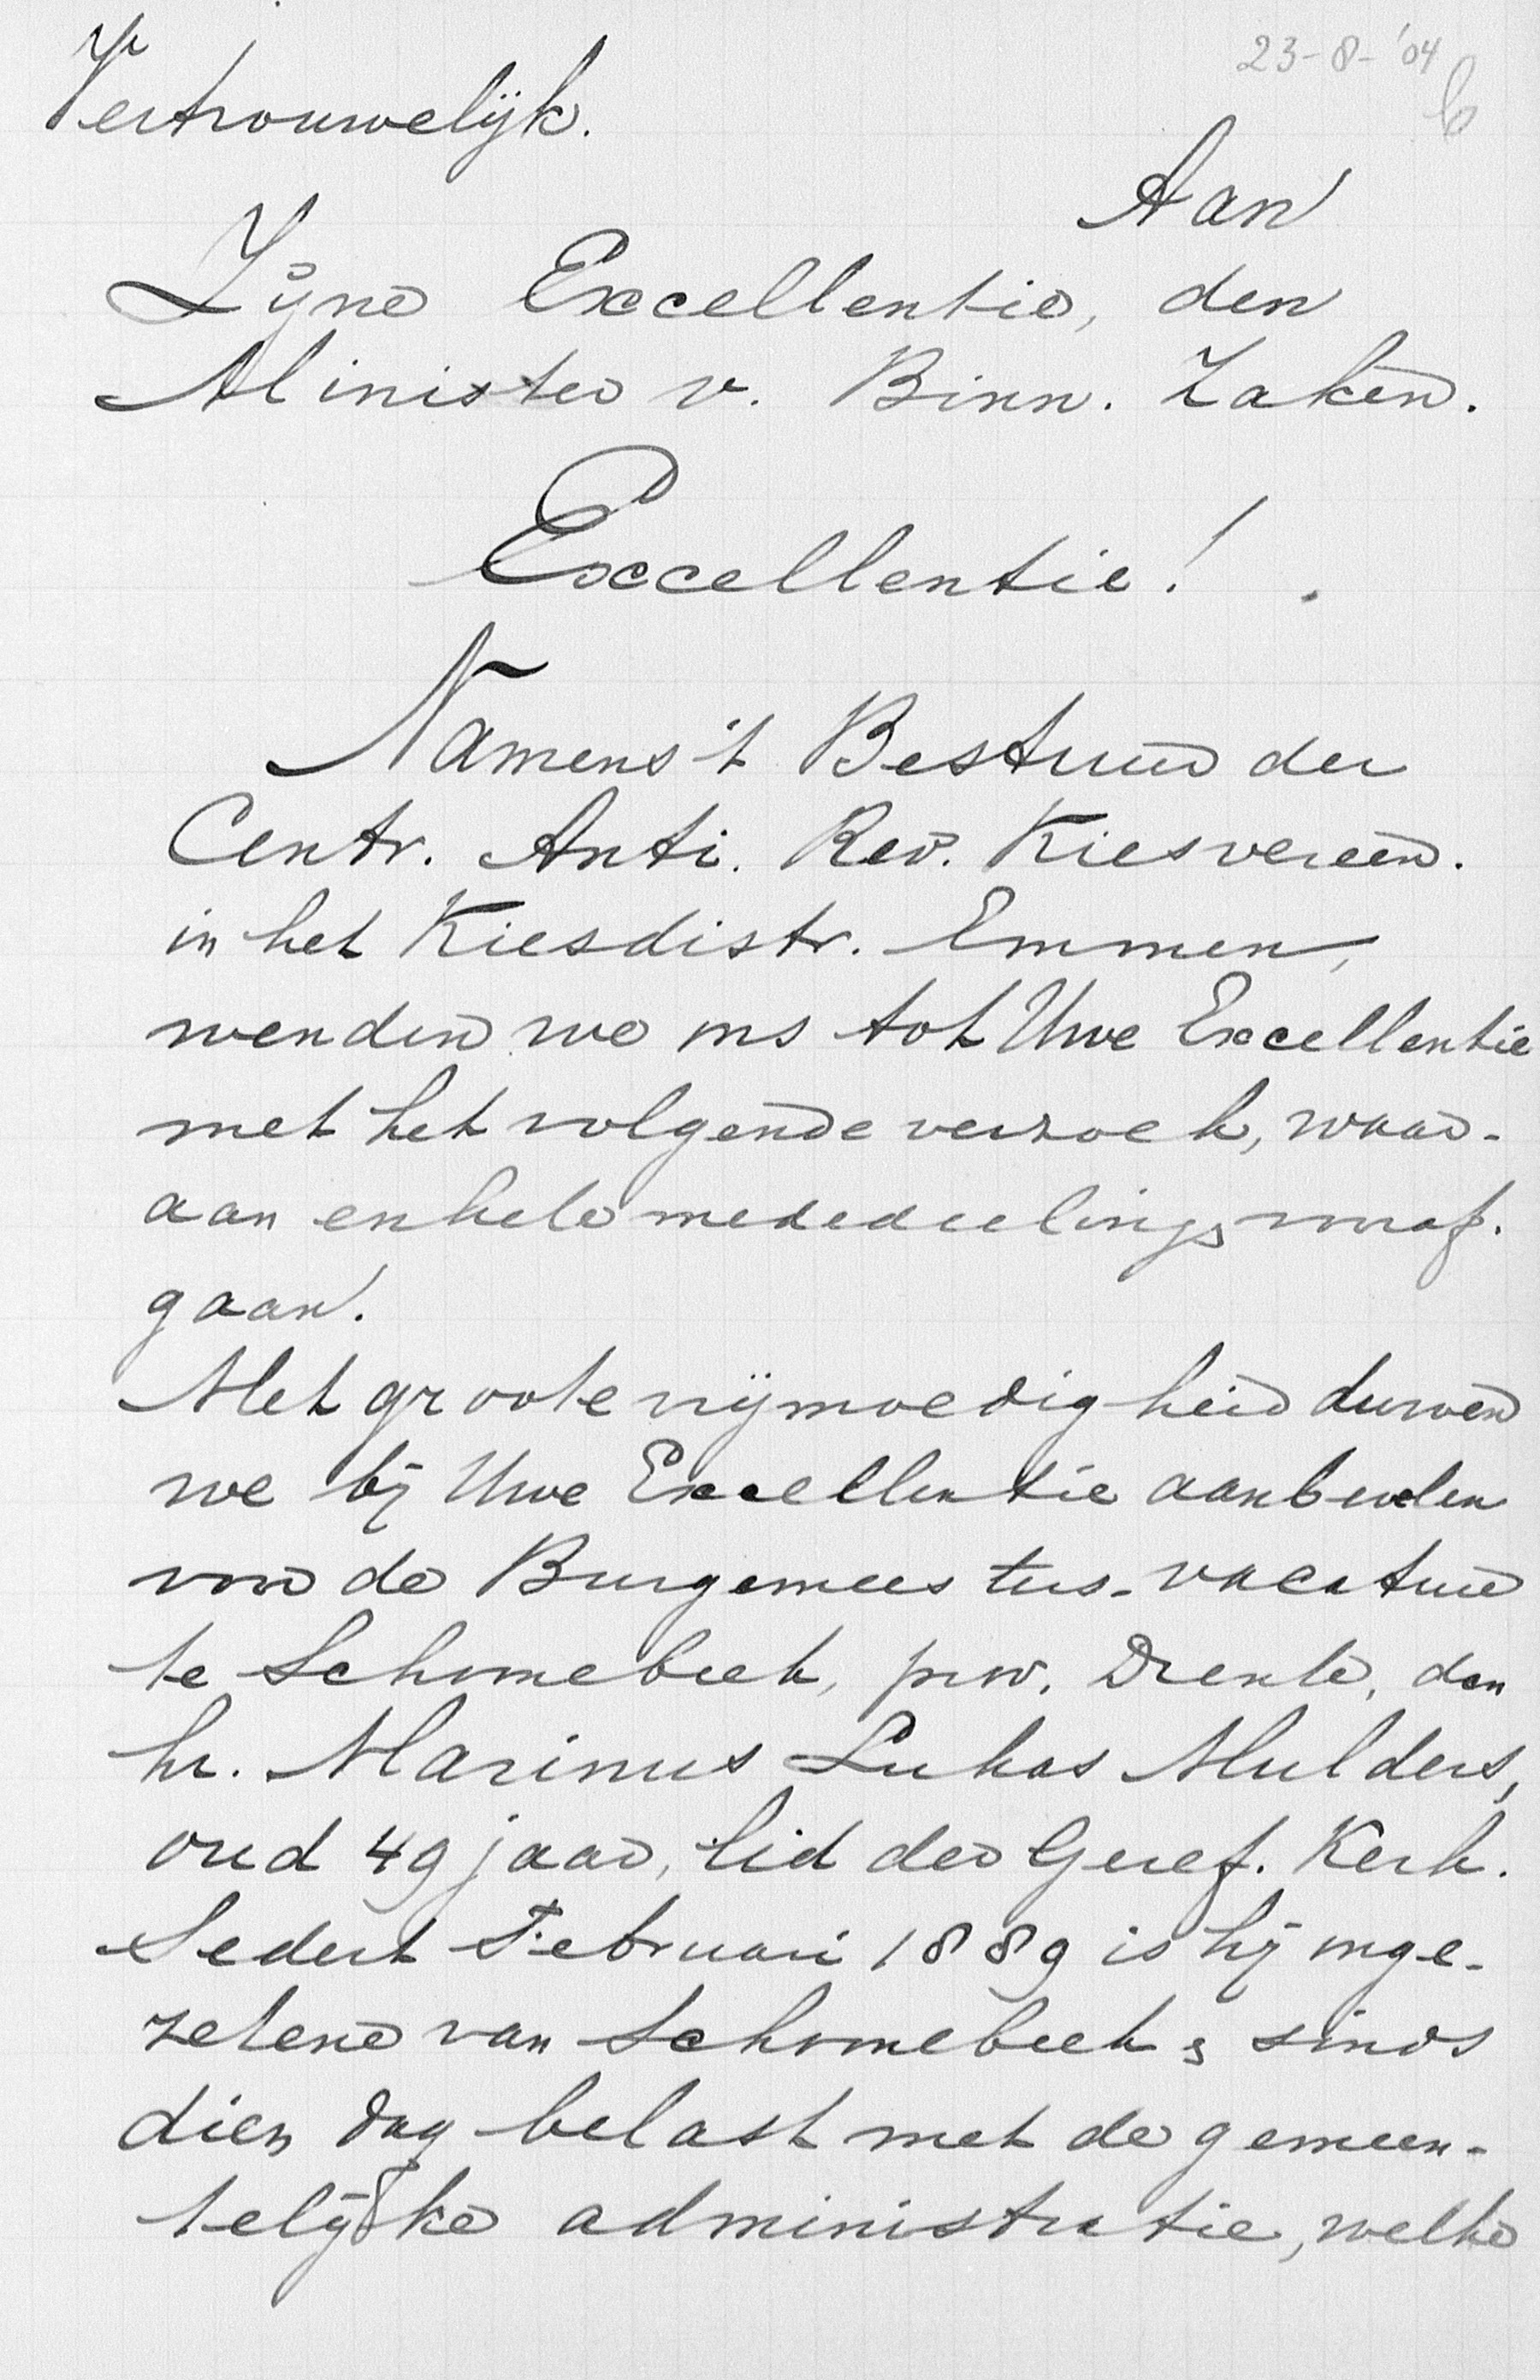 23-8-'04
b
Vertrouwelijk.
Aan
Zijne Excellentie, den
Minister v. Binn. Zaken.
Excellentie!
Namens 't Bestuur der
Centr. Anti. Rev. Kiesvereen.
in het Kiesdistr. Emmen,
wenden we ons tot Uwe Excellentie
met het volgende verzoek, waar-
aan enkele mededeelings vooraf.
gaan.
Met groote vrijmoedigheid durven
we bij Uwe Excellentie aanbevelen
voor de Burgemeesters-vacature
te Schoonebeek, prov. Drente, den
hr. Marinus Lukas Mulders,
oud 49 jaar, lid der Geref. Kerk.
Sedert Februari 1889 is hij inge-
zetene van Schoonebeek & sinds
dien dag belast met de gemeen-
telijke administratie, welke